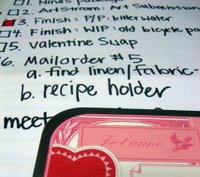 1. Nina's package
2. Artsmart submissions
3. Finish: P/P: bitterwater
4. Finish: WIP: old bicycle pa
5. Valentine Swap
6. Mailorder #5
a. find linen/fabric-
b. recipe holder
meet
Je t'aime